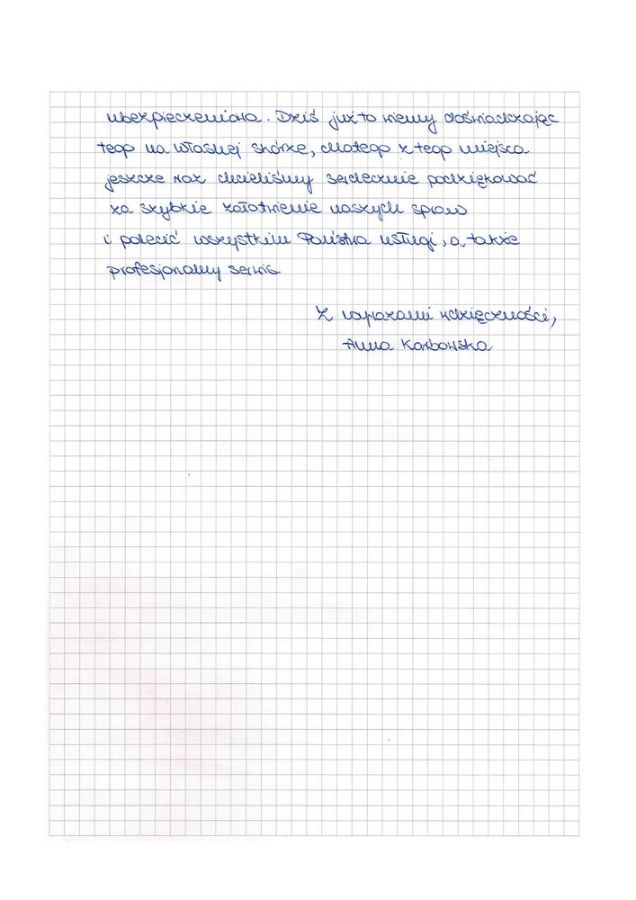 ubezpieczeniowa. Dziś już to wiemy doświadczając
tego na własnej skórze, dlatego z tego miejsca
jeszcze raz chcieliśmy serdecznie podziękować
za szybkie załatwienie naszych spraw
i polecić wszystkim Państwa usługi, a także
profesjonalny serwis.
Z wyrazami wdzięczności,
Anna Karbowska